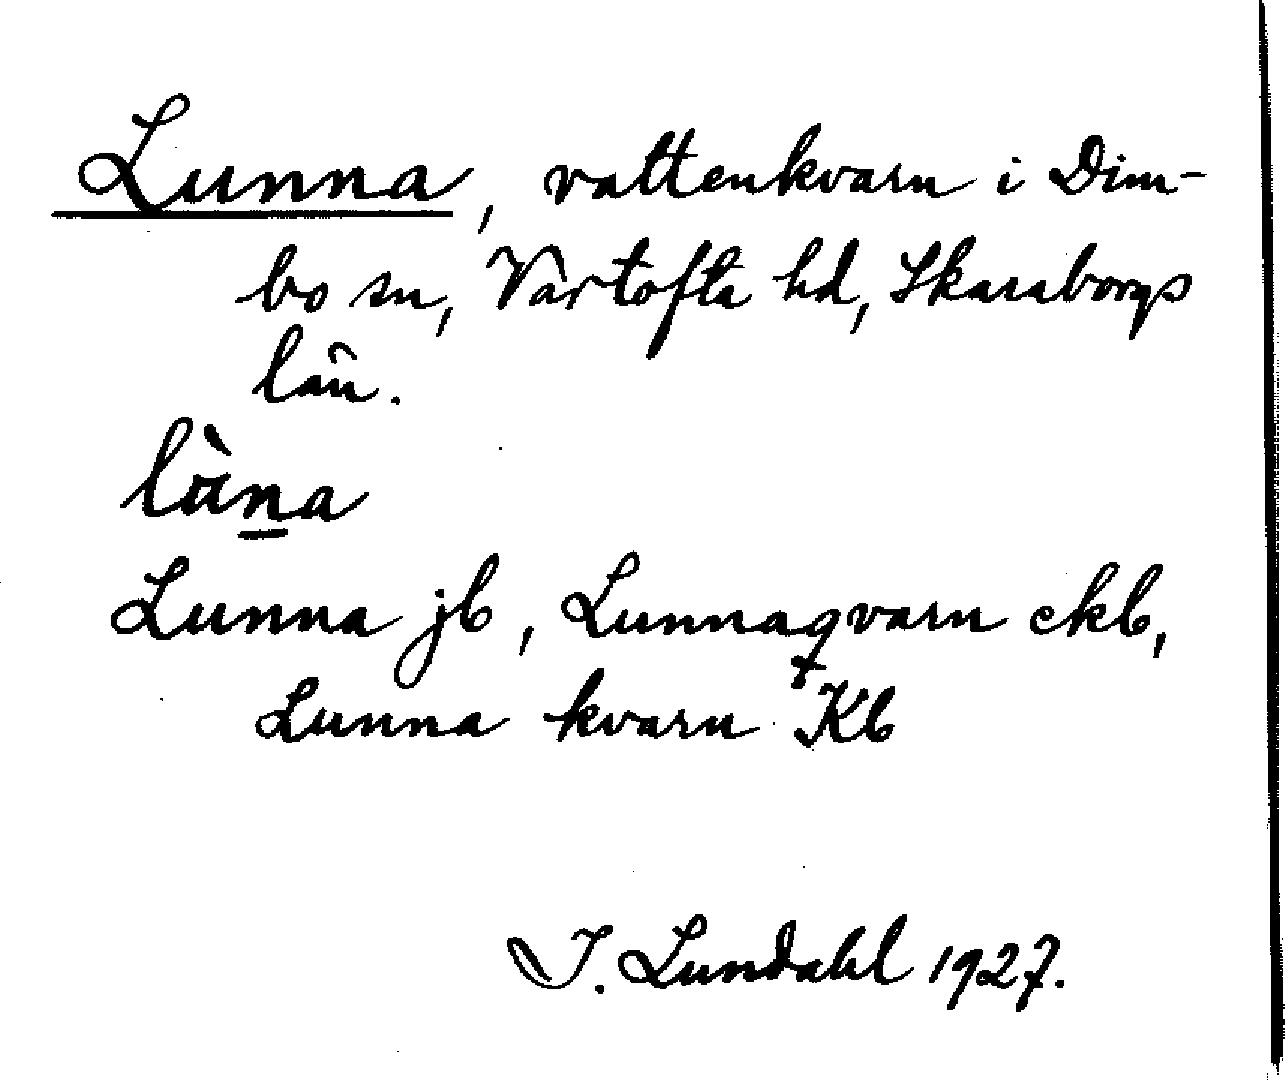 Lunna, vattenkvarn i Dim-
bo sn, Vartofta hd, Skaraborgs
län.
Lunna jb, Lunnaqvarn ekb,
Lunna kvarn Kb
I. Lundahl 1927.